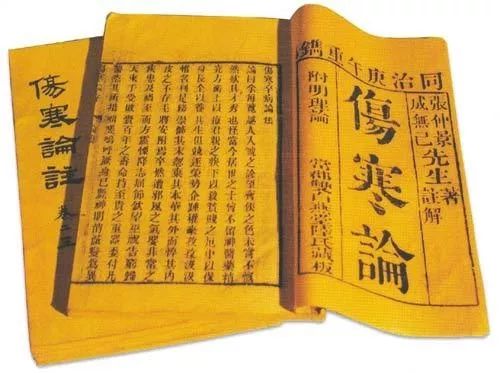 同治庚午重鐫
張仲景
成無己
先生
著
註解
傷寒論
附明理論
常郡雙白燕堂陸氏藏板
傷寒卒病論集
論曰余每覽越人入虢之診望齊侯之色未嘗不慨
然歎其才秀也怪當今居世之士曾不留神醫藥精
究方術上以療君親之疾下以救貧賤之厄中以保
身長全以養其生但競逐榮勢企踵權豪孜孜汲汲
惟名利是務崇飾其末忽棄其本華其外而悴其內
皮之不存毛將安附焉卒然遭邪風之氣嬰非常之
疾患及禍至而方震慄降志屈節欽望巫祝告窮歸
天束手受敗賫百年之壽命持至貴之重器委付凡
醫恣其所措咄嗟嗚呼厥身已斃神明消滅變為異
傷寒論註 卷二三